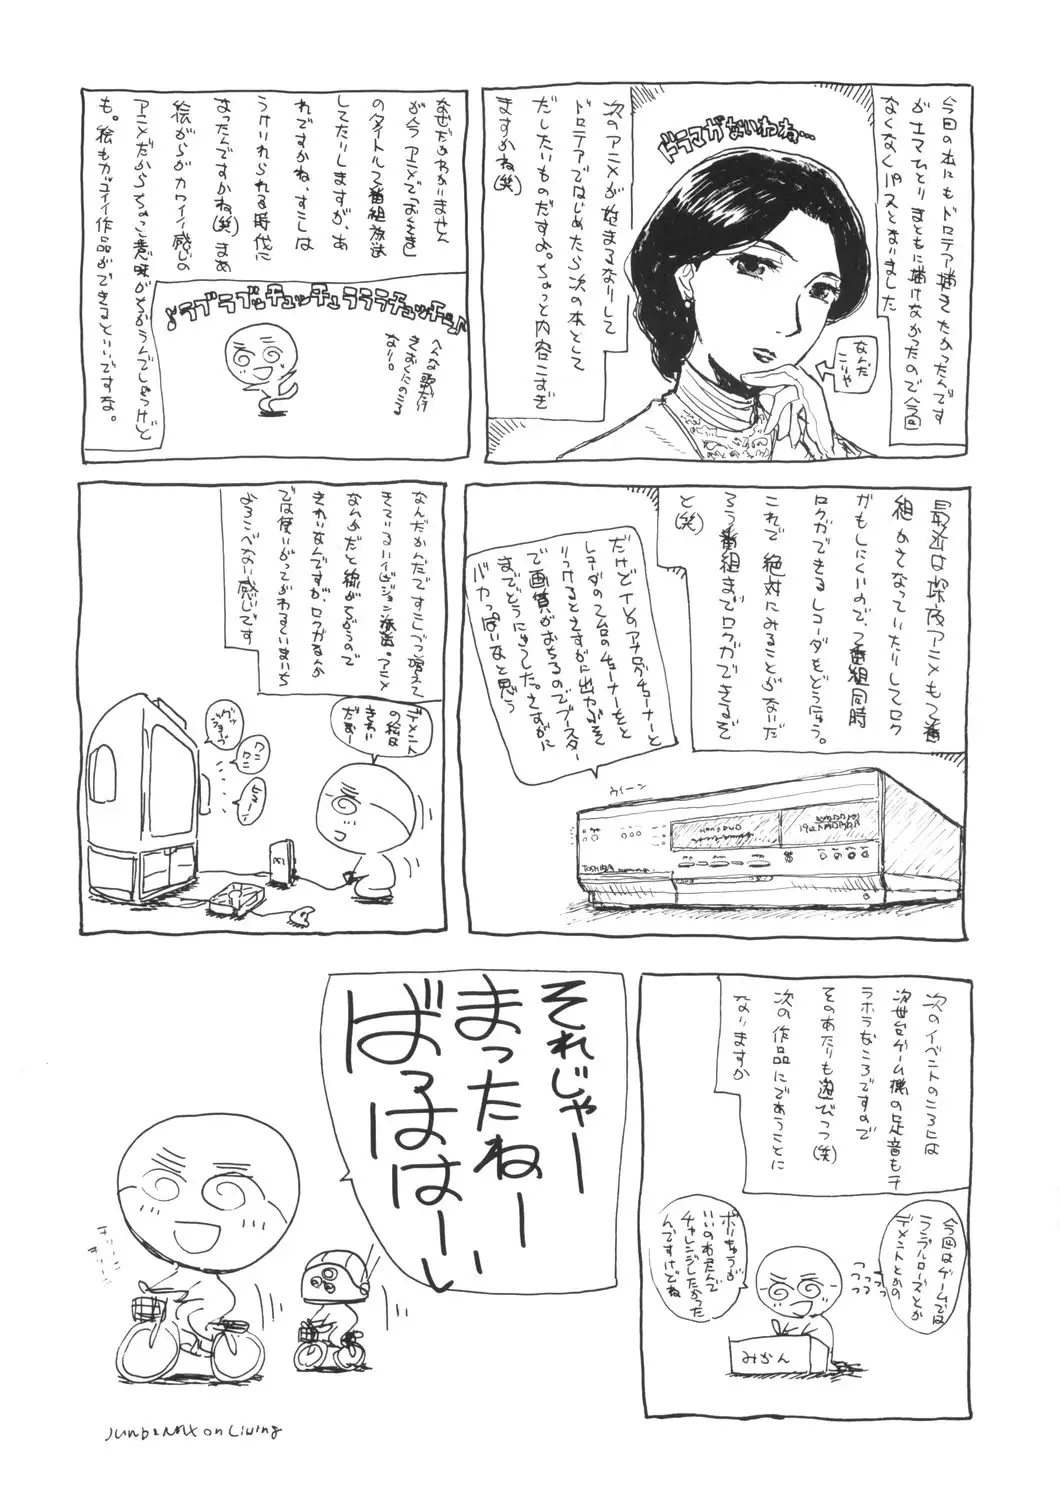 今回の本にもドロテア描きたかったんです
が士マひとりまともに描けなかったので今回
なくなくパスとなりました
ドラマがないわね…
なんだ
こいや
次のアニメが始まるなりして
ドロテアではじめたら次の本として
だしたいものだすよ。ちょっと内容こすぎ
ますかね(笑)
なぜだかわかりません
が今アニメで
のタイトルで番組放送
してたりしますが、あ
れですかね、すこしは
うけいれられる時代に
なったんですかね(笑)まあ
絵がらがカワイイ感じの
アニメだからちょっと意味がちがうんでしょうけど
も。絵もカッコイイ作品ができるといいですな。
♪ラブラブッチュッチュラララチュッチュ♪
へんな歌だけ
きおくにのこる
なり。
最近は深夜アニメも2番
組かさなっていたりしてロク
ガもしにくいので、2番組同時
ロクガできるレコーダをどうにゅう。
これで絶対にみることがないだ
ろう番組までロクガできるぞ
と(笑)
だけどTVのアナログチューナーと
レコーダの2台のチューナーをと
りつけるとさすがに出力がぶそく
で画質がおちるのでブースター
までどうにゅうした。さすがに
バカっぽいなと思う
ウィーン
TOSHIBA
なんだかんだですこしづつ増えて
きているハイビジョン放送。アニメ
なんかだと線がちがうので
きれいなんですが、ロクガなんか
では使いがってがわるくいまいち
よろこべない感じです
デメントの絵は
きれい
だなー
グッジョーブ
ワン
ワン
ヒューン
次のイベントのころには
次世台ゲーム機の足音もチ
ラホラなころですので
そのあたりも遊びつつ(笑)
次の作品にであうことに
なりますか
今回はゲームでは
ランブルローズとか
デメントとかの
つつつ
つつつ
ボリちゅうが
いいのわだんで
チャレンジしたかった
んですけどね
みかん
それじゃー
まったねーい
ばっはははーい
Junb&Max on Living